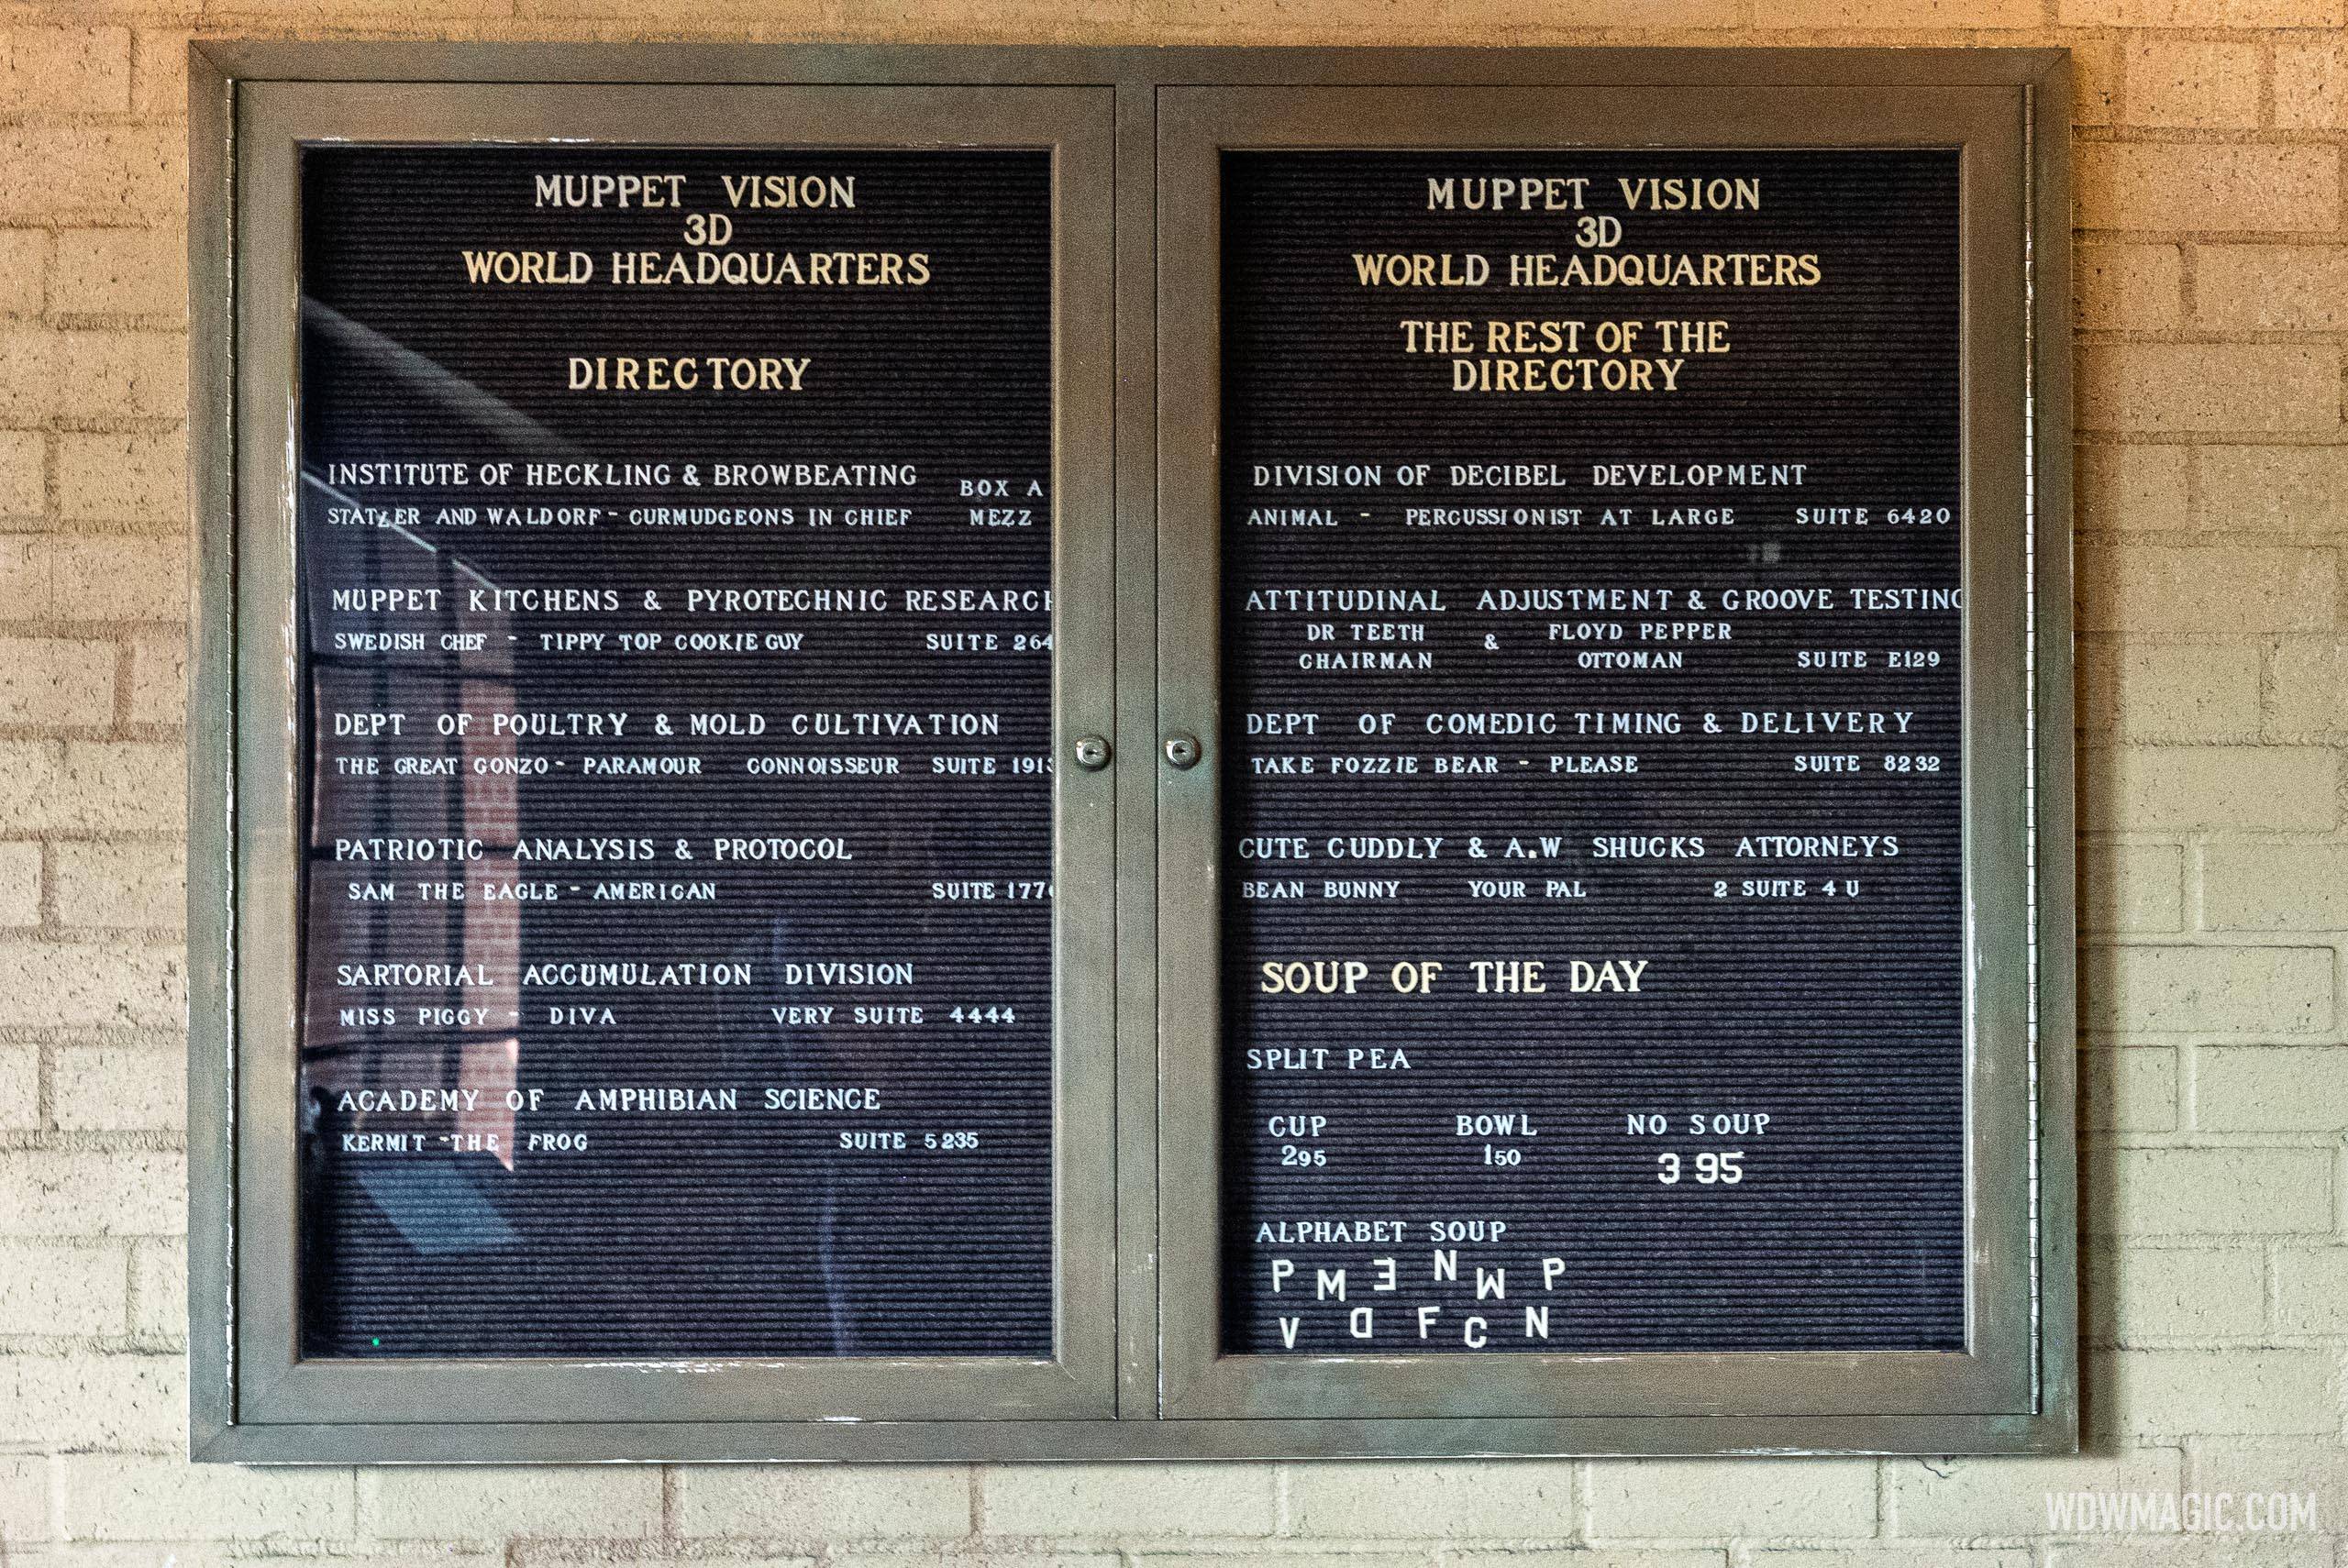 MUPPET VISION
3D
WORLD HEADQUARTERS
DIRECTORY
INSTITUTE OF HECKLING & BROWBEATING BOX A
STATLER AND WALDORF - CURMUDGEONS IN CHIEF MEZZ
MUPPET KITCHENS & PYROTECHNIC RESEARCH
SWEDISH CHEF - TIPPY TOP COOKIE GUY SUITE 264
DEPT OF POULTRY & MOLD CULTIVATION
THE GREAT GONZO - PARAMOUR CONNOISSEUR SUITE 1913
PATRIOTIC ANALYSIS & PROTOCOL
SAM THE EAGLE - AMERICAN SUITE 1776
SARTORIAL ACCUMULATION DIVISION
MISS PIGGY - DIVA VERY SUITE 4444
ACADEMY OF AMPHIBIAN SCIENCE
KERMIT - THE FROG SUITE 5235
MUPPET VISION
3D
WORLD HEADQUARTERS
THE REST OF THE
DIRECTORY
DIVISION OF DECIBEL DEVELOPMENT
ANIMAL - PERCUSSIONIST AT LARGE SUITE 6420
ATTITUDINAL ADJUSTMENT & GROOVE TESTING
DR TEETH & FLOYD PEPPER
CHAIRMAN OTTOMAN SUITE E129
DEPT OF COMEDIC TIMING & DELIVERY
TAKE FOZZIE BEAR - PLEASE SUITE 8232
CUTE CUDDLY & A.W SHUCKS ATTORNEYS
BEAN BUNNY YOUR PAL 2 SUITE 4 U
SOUP OF THE DAY
SPLIT PEA
CUP BOWL NO SOUP
295 150 3 95
ALPHABET SOUP
P M E N W P
V D F C N
WDWMAGIC.COM